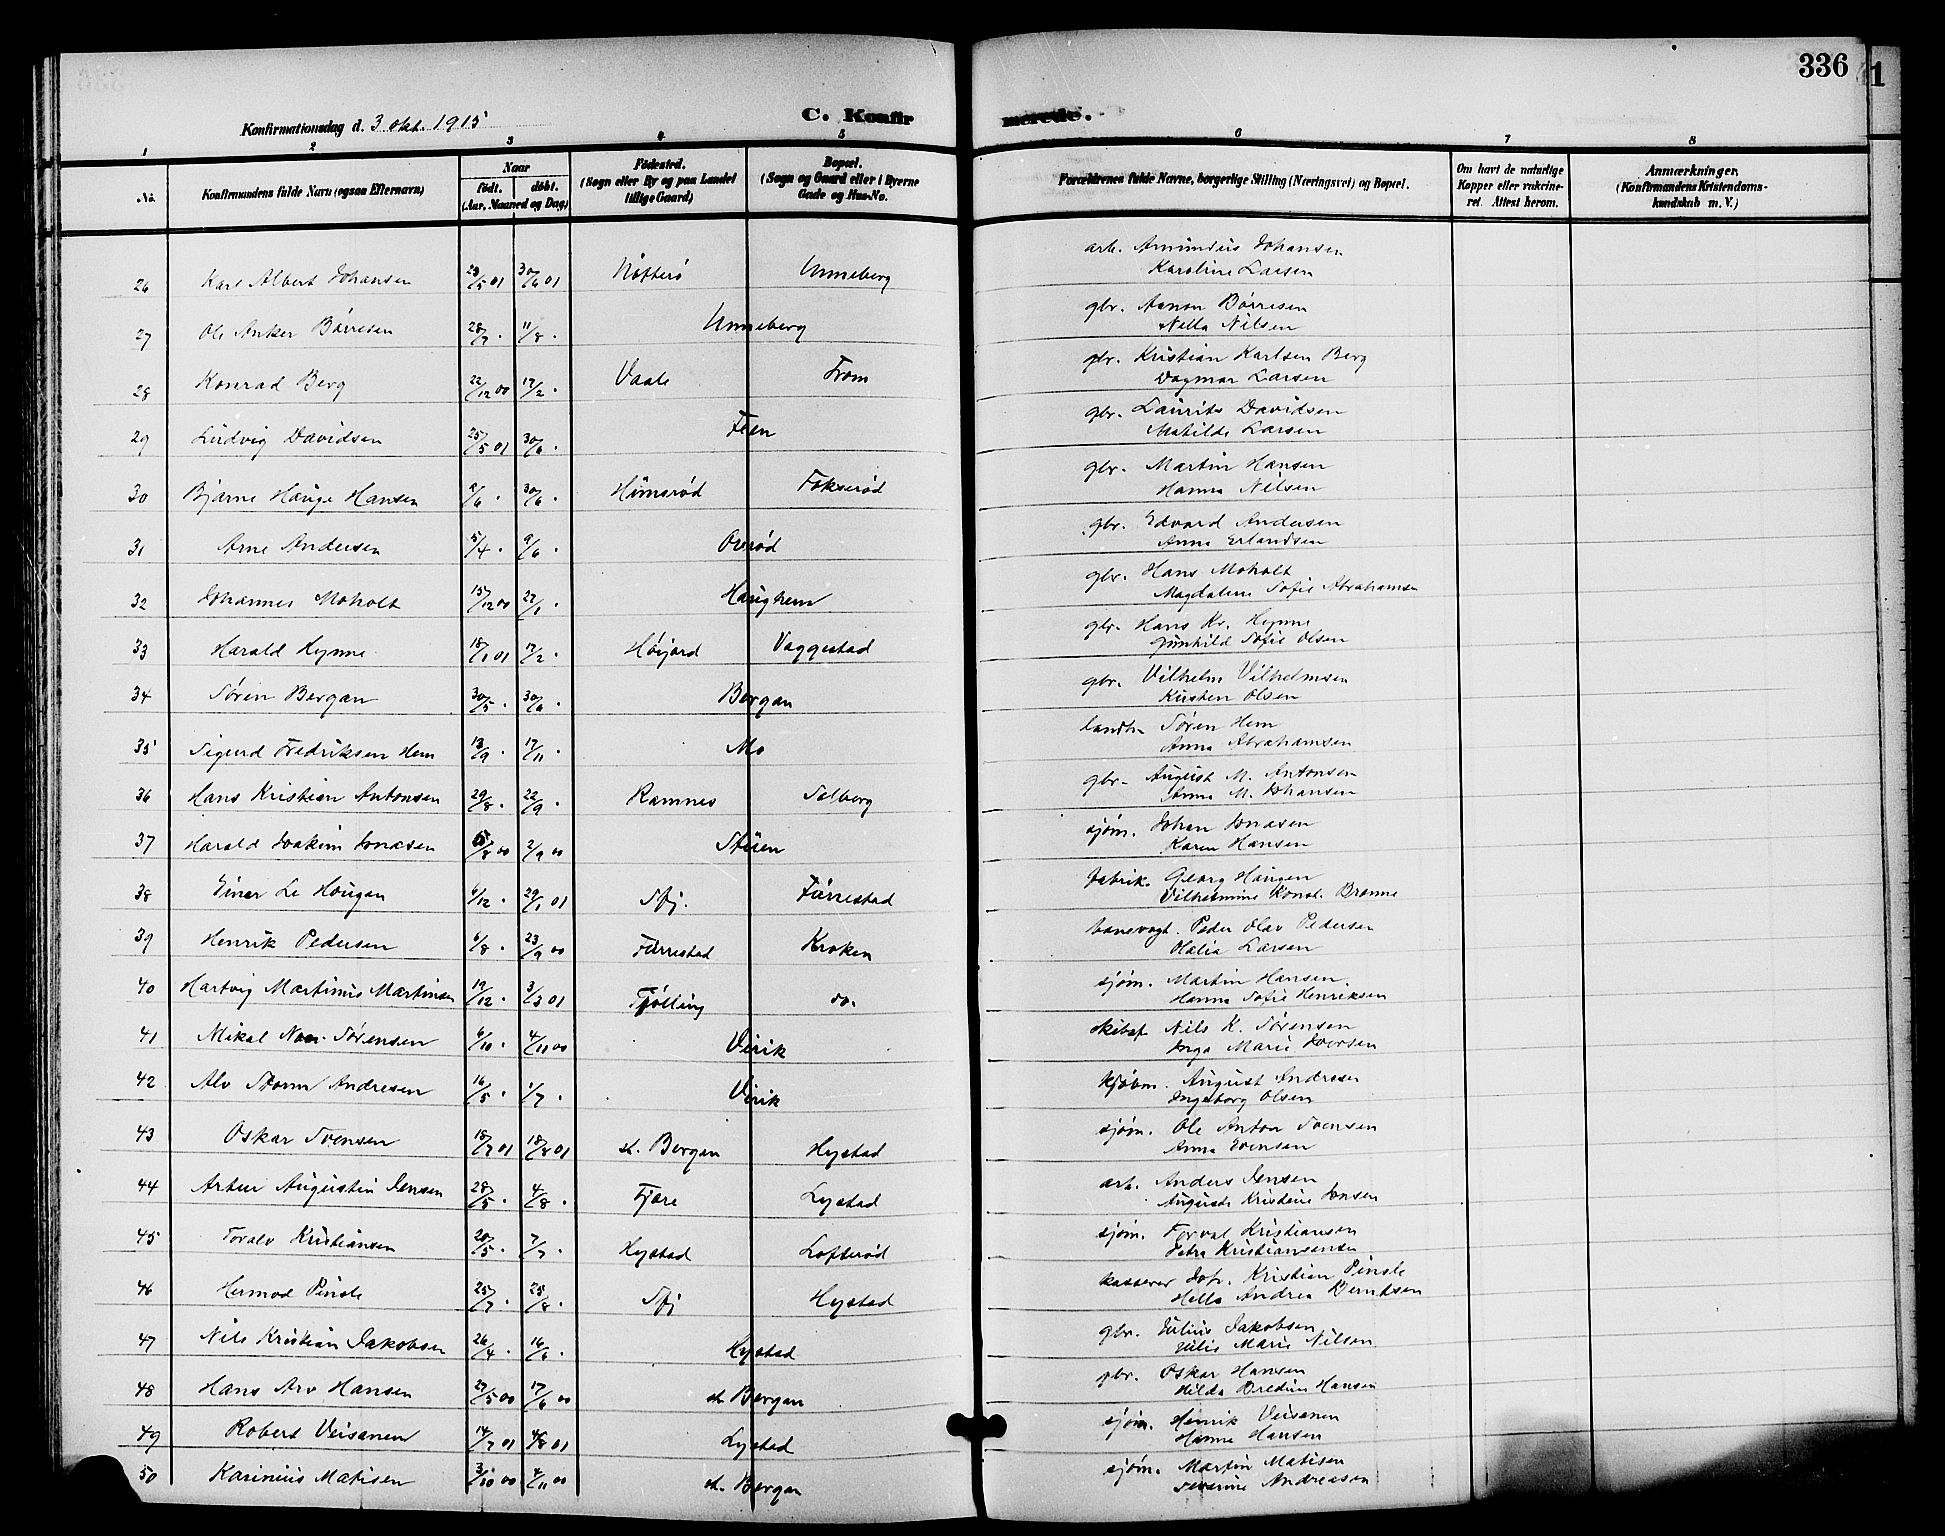 336
Konfirmationsdag d. 3 okt. 1915
C. Konfirmerede.
1 2 3 4 5 6 7 8
No
Konfirmandens fulde Navn (ogsaa Efternavn)
Naar
født. døbt.
(Aar, Maaned og Dag)
Fødested.
(Sogn eller By og paa Landet
tillige Gaard)
Bopæl.
(Sogn og Gaard eller i Byerne
Gade og Hus-No.
Forældrenes fulde Navne, borgerlige Stilling (Næringsvei) og Bopæl.
Om havt de naturlige
Kopper eller vakcine-
ret. Attest herom.
Anmærkninger.
(Konfirmandens Kristendoms-
kundskab m. V.)
26 Karl Albert Johansen 23/5 01 30/6 01 Nøtterø Unneberg arb. Amundus Johansen
Karoline Larsen
27 Ole Anker Börresen 28/7 . 11/8 . Unneberg gbr. Aanon Börresen
Nella Nilsen
28 Konrad Berg 22/12 00 17/2 . Vaale From gbr. Kristian Karlsen Berg
Dagmar Larsen
29 Ludvig Davidsen 25/5 01 30/6 . Feen gbr. Laurits Davidsen
Matilde Larsen
30 Bjarne Hauge Hansen 9/6 . 30/6 . Himsrød Fokserød gbr. Martin Hansen
Hanna Nilsen
31 Arne Andersen 5/4 . 9/6 . Ousrød gbr. Edvard Andersen
Anna Erlandsen
32 Johannes Moholt 15/12 00 27/1 . Haughem gbr. Hans Moholt
Magdalene Sofie Abrahamsen
33 Harald Hynne 18/1 01 17/2 . Høijord Vaggestad gbr. Hans Kr. Hynne
Gunhild Sofie Olsen
34 Søren Bergan 30/5 . 30/6 . Bergan gbr. Vilhelm Vilhelmsen
Kirsten Olsen
35 Sigurd Fredriksen Hem 13/9 . 17/11 . Mo landh. Søren Hem
Anna Abrahamsen
36 Hans Kristian Antonsen 29/8 . 22/9 . Ramnes Solberg gbr. August M. Antonsen
Anna M. Johansen
37 Harald Joakim Jonasen 5/8 00 2/9 00 Stuen sjøm. Johan Jonasen
Karen Hansen
38 Einar Le Hougan 6/12 . 29/1 01 Sfj. Furrestad fabrik. Georg Haugen
Vilhelmine Konst. Brenne
39 Henrik Pedersen 6/8 . 23/9 00 Furrestad Kroken banevogt. Peder Olav Pedersen
Olalia Larsen
40 Hartvig Martinius Martinsen 19/12 . 3/3 01 Tjølling do. sjøm. Martin Hansen
Hanna Sofie Henriksen
41 Mikal Sørensen 6/10 . 4/11 00 Virik skibsf. Nils K. Sørensen
Inga Marie Iversen
42 Alv Storm Andresen 16/5 . 1/7 . Virik kjøbm. August Andresen
Ingeborg Olsen
43 Oskar Svensen 18/7 01 18/8 01 st. Bergan Hystad sjøm. Ole Anton Svensen
Anna Svensen
44 Artur Augustin Jensen 28/5 . 4/8 . Fjære Lystad arb. Anders Jensen
Auguste Kristine Jonsen
45 Toralv Kristiansen 20/5 . 7/7 . Hystad Lofterød sjøm. Torval Kristiansen
Petra Kristiansensen
46 Hermod Pinsle 25/7 . 25/8 . Sfj Hystad kasserer Joh. Kristian Pinsle
Hella Andrea Berndsen
47 Nils Kristian Jakobsen 26/4 . 16/6 . Hystad gbr. Julius Jakobsen
Julie Marie Nilsen
48 Hans Arv Hansen 27/5 00 17/6 00 st. Bergan gbr. Oskar Hansen
Hilda Bredine Hansen
49 Robert Veisanen 14/7 01 4/8 01 Lystad sjøm. Henrik Veisanen
Hanne Hansen
50 Karinius Matisen 3/10 00 4/11 00 st. Bergan sjøm. Martin Matisen
Severine Andreasen